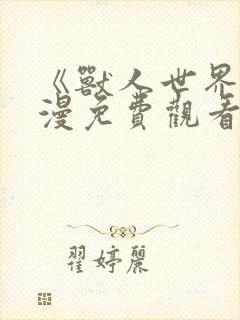 《獸人世界
漫免費觀看
翟婷麗